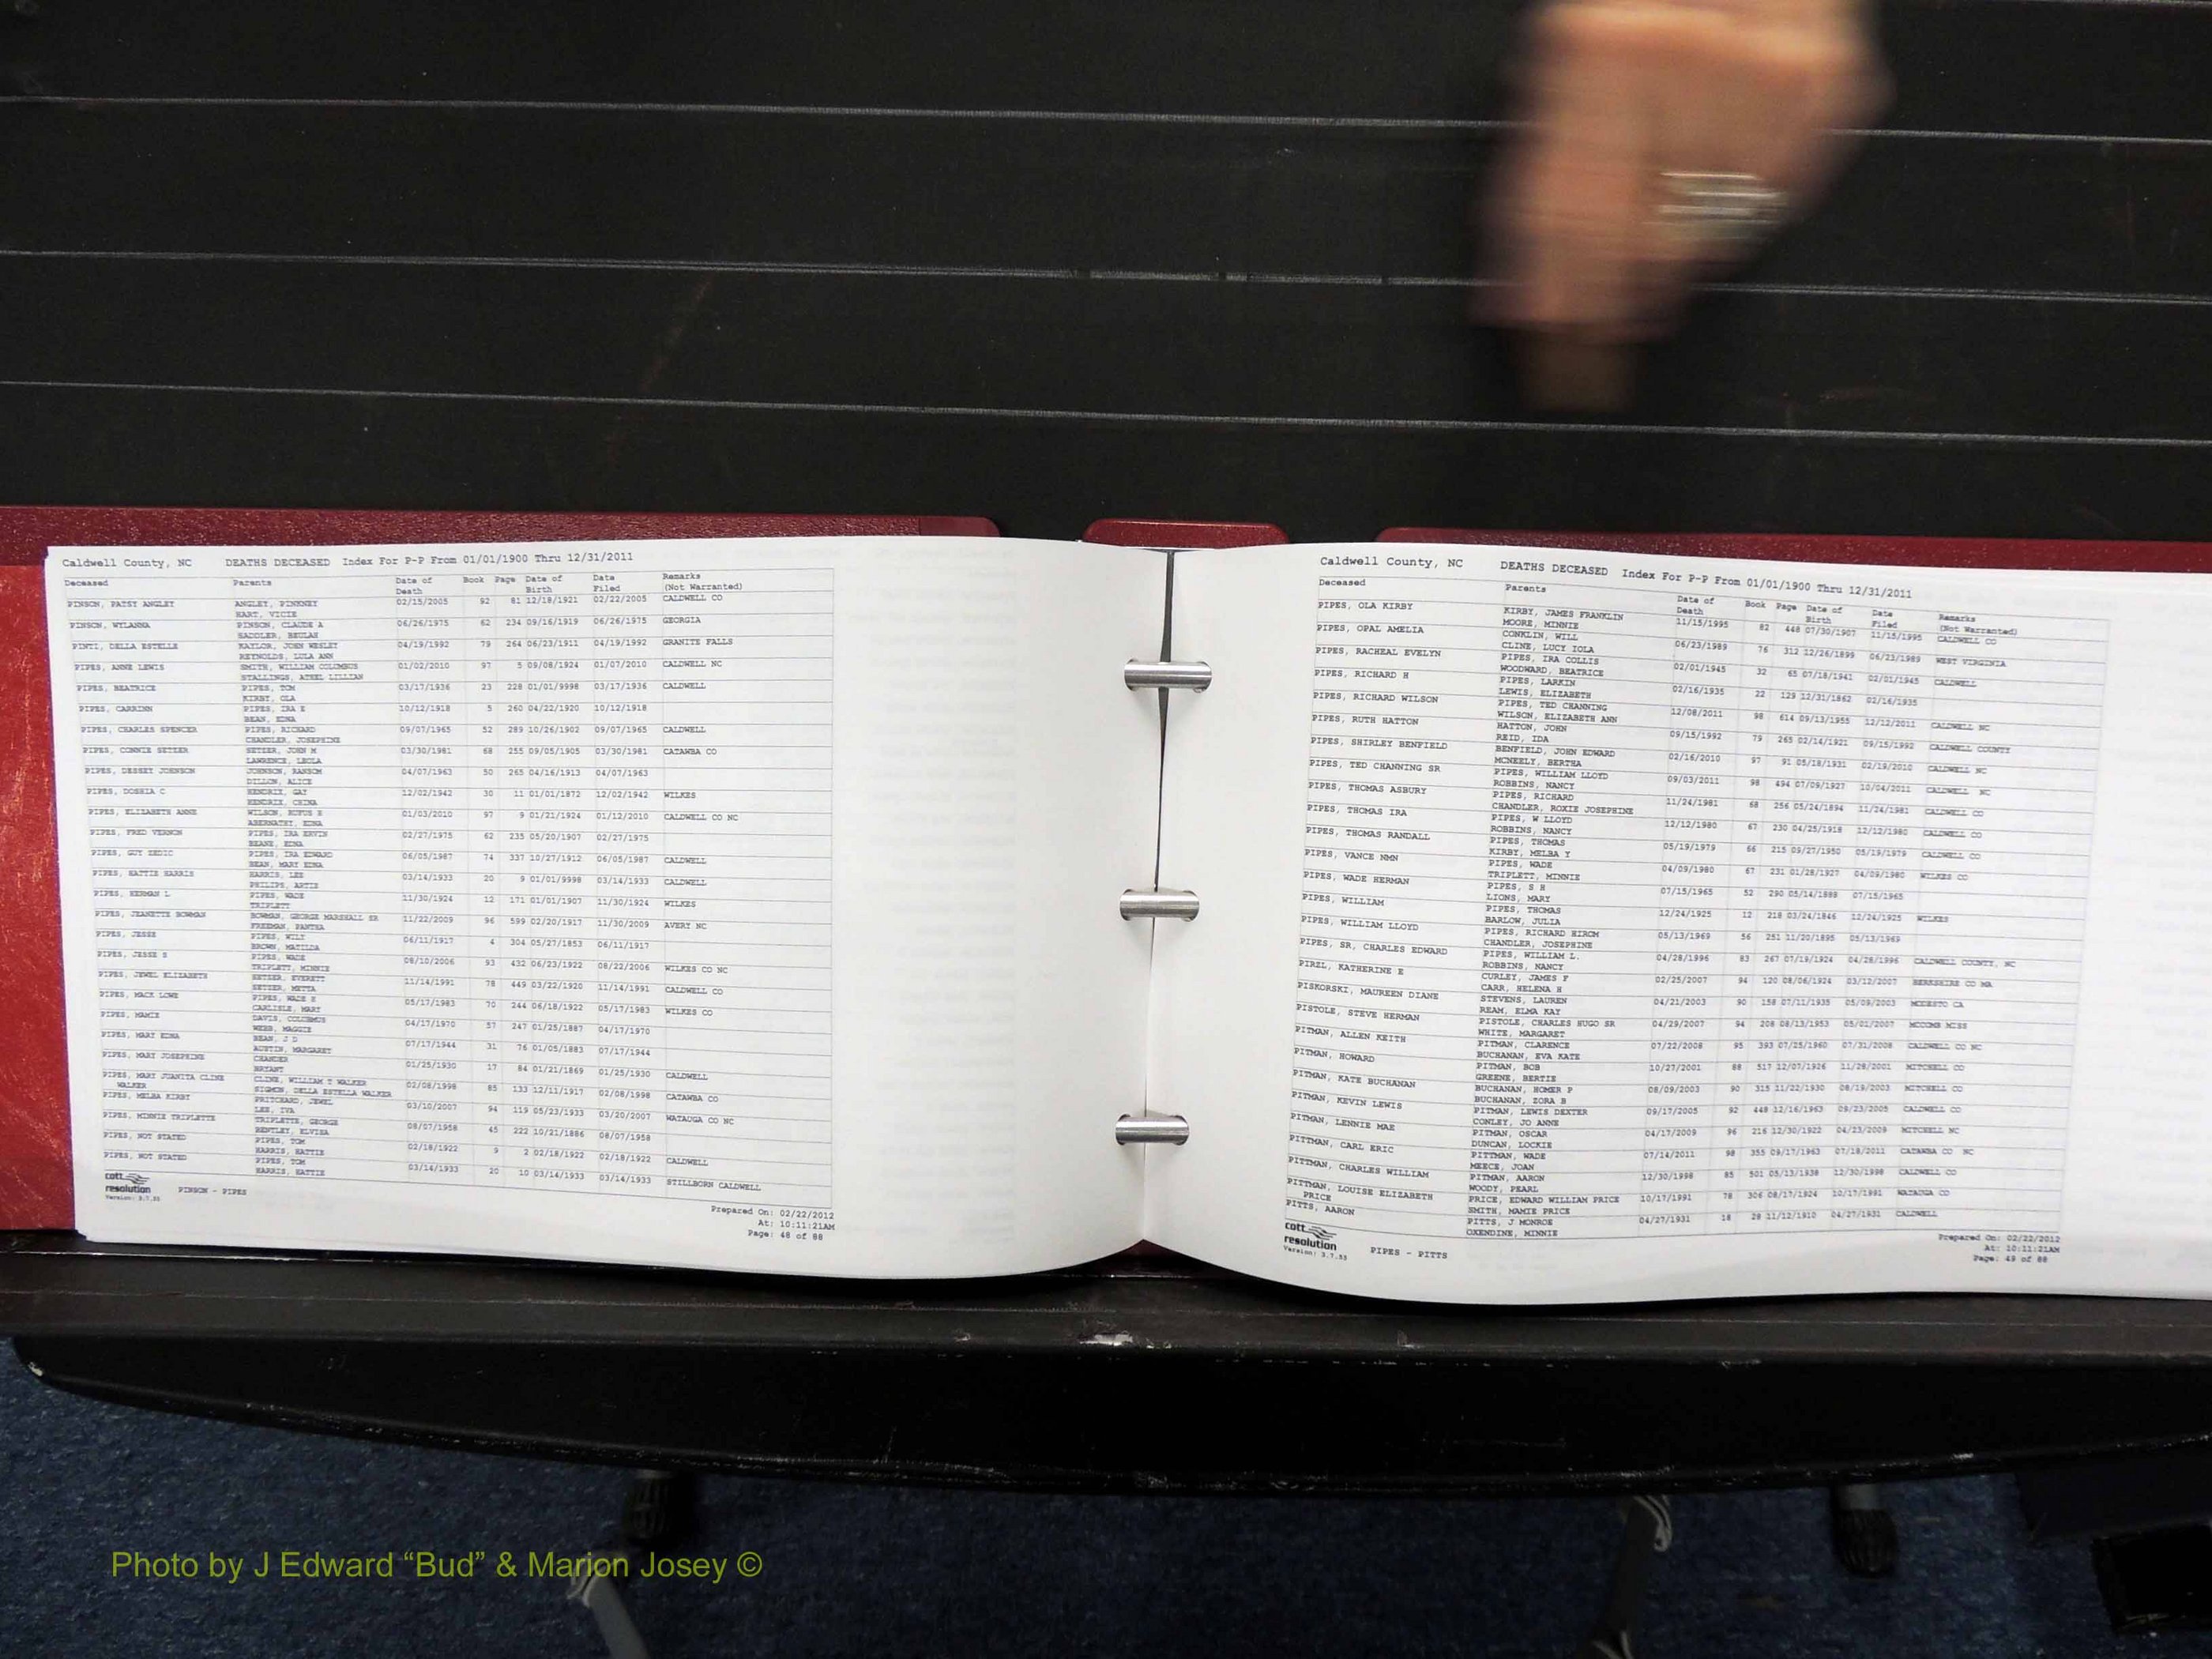 Caldwell County, NC DEATHS DECEASED Index For P-P From 01/01/1900 Thru 12/31/2011
Deceased Parents Date of Death Book Page Date of Birth Date Filed Remarks (Not Warranted)
PINSON, PATSY ANGLEY ANGLEY, PINKNEY 02/15/2005 92 81 12/18/1921 02/22/2005 CALDWELL CO
HART, VICIE
PINSON, WYLANNA PINSON, CLAUDE A 06/26/1975 62 234 09/16/1919 06/26/1975 GEORGIA
SADDLER, BEULAH
PINTI, DELLA ESTELLE KAYLOR, JOHN WESLEY 04/19/1992 79 264 06/23/1911 04/19/1992 GRANITE FALLS
REYNOLDS, LULA ANN
PIPES, ANNE LEWIS SMITH, WILLIAM COLUMBUS 01/02/2010 97 5 09/08/1924 01/07/2010 CALDWELL NC
STALLINGS, ATHEL LILLIAN
PIPES, BEATRICE PIPES, TOM 03/17/1936 23 228 01/01/9998 03/17/1936 CALDWELL
KIRBY, OLA
PIPES, CARRINN PIPES, IRA E 10/12/1918 5 260 04/22/1920 10/12/1918
BEAN, EDNA
PIPES, CHARLES SPENCER PIPES, RICHARD 09/07/1965 52 289 10/26/1902 09/07/1965 CALDWELL
CHANDLER, JOSEPHINE
PIPES, CONNIE SETZER SETZER, JOHN M 03/30/1981 68 255 09/05/1905 03/30/1981 CATAWBA CO
LAWRENCE, LEOLA
PIPES, DESSEY JOHNSON JOHNSON, RANSOM 04/07/1963 50 265 04/16/1913 04/07/1963
DILLON, ALICE
PIPES, DOSHIA C HENDRIX, GAY 12/02/1942 30 11 01/01/1872 12/02/1942 WILKES
HENDRIX, CHINA
PIPES, ELIZABETH ANNE WILSON, RUFUS E 01/03/2010 97 9 01/21/1924 01/12/2010 CALDWELL CO NC
ABERNATHY, EDNA
PIPES, FRED VERNON PIPES, IRA ERVIN 02/27/1975 62 235 05/20/1907 02/27/1975
BEANE, EDNA
PIPES, GUY ZEDIC PIPES, IRA EDWARD 06/05/1987 74 337 10/27/1912 06/05/1987 CALDWELL
BEAN, MARY EDNA
PIPES, HATTIE HARRIS HARRIS, LEE 03/14/1933 20 9 01/01/9998 03/14/1933 CALDWELL
PHILIPS, ARTIE
PIPES, HERMAN L PIPES, WADE 11/30/1924 12 171 01/01/1907 11/30/1924 WILKES
TRIPLETT
PIPES, JEANETTE BOWMAN BOWMAN, GEORGE MARSHALL SR 11/22/2009 96 599 02/20/1917 11/30/2009 AVERY NC
FREEMAN, PANTHA
PIPES, JESSE PIPES, WILY 06/11/1917 4 304 05/27/1853 06/11/1917
BROWN, MATILDA
PIPES, JESSE S PIPES, WADE 08/10/2006 93 432 06/23/1922 08/22/2006 WILKES CO NC
TRIPLETT, MINNIE
PIPES, JEWEL ELIZABETH SETSER, EVERETT 11/14/1991 78 449 03/22/1920 11/14/1991 CALDWELL CO
SETZER, METTA
PIPES, MACK LOWE PIPES, WADE H 05/17/1983 70 244 06/18/1922 05/17/1983 WILKES CO
CARLISLE, MARY
PIPES, MAMIE DAVIS, COLUMBUS 04/17/1970 57 247 01/25/1887 04/17/1970
WEBB, MAGGIE
PIPES, MARY EDNA BEAN, J D 07/17/1944 31 76 01/05/1883 07/17/1944
AUSTIN, MARGARET
PIPES, MARY JOSEPHINE CHANDER 01/25/1930 17 84 01/21/1869 01/25/1930 CALDWELL
BRYANT
PIPES, MARY JUANITA CLINE WALKER CLINE, WILLIAM T WALKER 02/08/1998 85 133 12/11/1917 02/08/1998 CATAWBA CO
SIGMON, DELLA ESTELLA WALKER
PIPES, MELBA KIRBY PRITCHARD, JEWEL 03/10/2007 94 119 05/23/1933 03/20/2007 WATAUGA CO NC
LEE, IVA
PIPES, MINNIE TRIPLETTE TRIPLETTE, GEORGE 08/07/1958 45 222 10/21/1886 08/07/1958
BENTLEY, ELVIRA
PIPES, NOT STATED PIPES, TOM 02/18/1922 9 2 02/18/1922 02/18/1922 CALDWELL
HARRIS, HATTIE
PIPES, NOT STATED PIPES, TOM 03/14/1933 20 10 03/14/1933 03/14/1933 STILLBORN CALDWELL
HARRIS, HATTIE
cott
resolution
Version: 3.7.55
PINSON - PIPES
Prepared On: 02/22/2012
At: 10:11:21AM
Page: 48 of 88
Caldwell County, NC DEATHS DECEASED Index For P-P From 01/01/1900 Thru 12/31/2011
Deceased Parents Date of Death Book Page Date of Birth Date Filed Remarks (Not Warranted)
PIPES, OLA KIRBY KIRBY, JAMES FRANKLIN 11/15/1995 82 448 07/30/1907 11/15/1995 CALDWELL CO
MOORE, MINNIE
PIPES, OPAL AMELIA CONKLIN, WILL 06/23/1989 76 312 12/26/1899 06/23/1989 WEST VIRGINIA
CLINE, LUCY IOLA
PIPES, RACHEAL EVELYN PIPES, IRA COLLIS 02/01/1945 32 65 07/18/1941 02/01/1945 CALDWELL
WOODWARD, BEATRICE
PIPES, RICHARD H PIPES, LARKIN 02/16/1935 22 129 12/31/1862 02/16/1935
LEWIS, ELIZABETH
PIPES, RICHARD WILSON PIPES, TED CHANNING 12/08/2011 98 614 09/13/1955 12/12/2011 CALDWELL NC
WILSON, ELIZABETH ANN
PIPES, RUTH HATTON HATTON, JOHN 09/15/1992 79 265 02/14/1921 09/15/1992 CALDWELL COUNTY
REID, IDA
PIPES, SHIRLEY BENFIELD BENFIELD, JOHN EDWARD 02/16/2010 97 91 05/18/1931 02/19/2010 CALDWELL NC
MCNEELY, BERTHA
PIPES, TED CHANNING SR PIPES, WILLIAM LLOYD 09/03/2011 98 494 07/09/1927 10/04/2011 CALDWELL NC
ROBBINS, NANCY
PIPES, THOMAS ASBURY PIPES, RICHARD 11/24/1981 68 256 05/24/1894 11/24/1981 CALDWELL CO
CHANDLER, ROXIE JOSEPHINE
PIPES, THOMAS IRA PIPES, W LLOYD 12/12/1980 67 230 04/25/1918 12/12/1980 CALDWELL CO
ROBBINS, NANCY
PIPES, THOMAS RANDALL PIPES, THOMAS 05/19/1979 66 215 09/27/1950 05/19/1979 CALDWELL CO
KIRBY, MELBA Y
PIPES, VANCE NMN PIPES, WADE 04/09/1980 67 231 01/28/1927 04/09/1980 WILKES CO
TRIPLETT, MINNIE
PIPES, WADE HERMAN PIPES, S H 07/15/1965 52 290 05/14/1888 07/15/1965
LIONS, MARY
PIPES, WILLIAM PIPES, THOMAS 12/24/1925 12 218 03/24/1846 12/24/1925 WILKES
BARLOW, JULIA
PIPES, WILLIAM LLOYD PIPES, RICHARD HIROM 05/13/1969 56 251 11/20/1895 05/13/1969
CHANDLER, JOSEPHINE
PIPES, SR, CHARLES EDWARD PIPES, WILLIAM L. 04/28/1996 83 267 07/19/1924 04/28/1996 CALDWELL COUNTY, NC
ROBBINS, NANCY
PIREL, KATHERINE E CURLEY, JAMES F 02/25/2007 94 120 08/06/1924 03/12/2007 BERKSHIRE CO MA
CARR, HELENA H
PISKORSKI, MAUREEN DIANE STEVENS, LAUREN 04/21/2003 90 158 07/11/1935 05/09/2003 MODESTO CA
REAM, ELMA KAY
PISTOLE, STEVE HERMAN PISTOLE, CHARLES HUGO SR 04/29/2007 94 208 08/13/1953 05/01/2007 MCCOMB MISS
WHITE, MARGARET
PITMAN, ALLEN KEITH PITMAN, CLARENCE 07/22/2008 95 393 07/25/1960 07/31/2008 CALDWELL CO NC
BUCHANAN, EVA KATE
PITMAN, HOWARD PITMAN, BOB 10/27/2001 88 517 12/07/1926 11/28/2001 MITCHELL CO
GREENE, BERTIE
PITMAN, KATE BUCHANAN BUCHANAN, HOMER P 08/09/2003 90 315 11/22/1930 08/19/2003 MITCHELL CO
BUCHANAN, ZORA B
PITMAN, KEVIN LEWIS PITMAN, LEWIS DEXTER 09/17/2005 92 448 12/16/1963 09/23/2005 CALDWELL CO
CONLEY, JO ANNE
PITMAN, LENNIE MAE PITMAN, OSCAR 04/17/2009 96 216 12/30/1922 04/23/2009 MITCHELL NC
DUNCAN, LOCKIE
PITTMAN, CARL ERIC PITTMAN, WADE 07/14/2011 98 355 09/17/1963 07/18/2011 CATAWBA CO NC
MEECE, JOAN
PITTMAN, CHARLES WILLIAM PITMAN, AARON 12/30/1998 85 501 05/13/1938 12/30/1998 CALDWELL CO
WOODY, PEARL
PITTMAN, LOUISE ELIZABETH PRICE PRICE, EDWARD WILLIAM PRICE 10/17/1991 78 306 08/17/1924 10/17/1991 WATAUGA CO
SMITH, MAMIE PRICE
PITTS, AARON PITTS, J MONROE 04/27/1931 18 28 11/12/1910 04/27/1931 CALDWELL
OXENDINE, MINNIE
cott
resolution
Version: 3.7.55
PIPES - PITTS
Prepared On: 02/22/2012
At: 10:11:21AM
Page: 49 of 88
Photo by J Edward “Bud” & Marion Josey ©